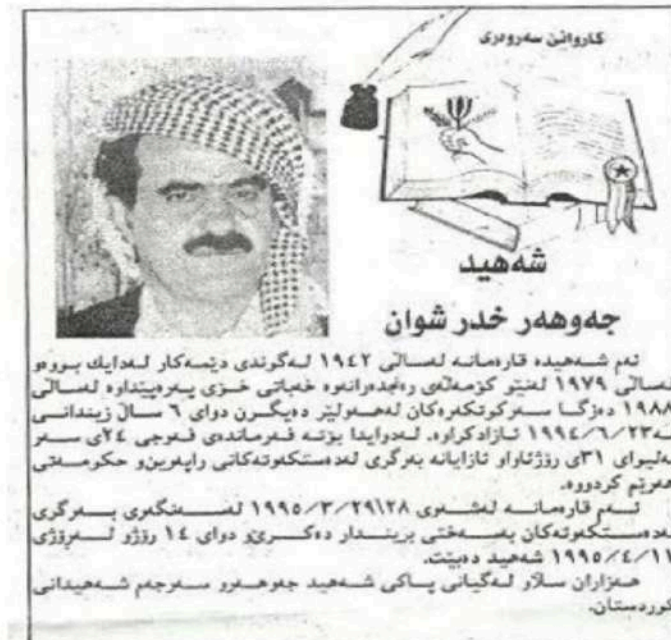 کاروانی سەروەری
شەهید
جەوهەر خدر شوان
ئەم شەهیدە قارەمانە لەساڵی ١٩٤٢ لەگوندی دێمەکار لەدایك بووەو
لەساڵی ١٩٧٩ لەنێو کۆمەڵەی رەنجدەرانەوە خەباتی خۆی پەرەپێداوە لەساڵی
١٩٨٨ دەزگا سەرکوتکەرەکان لەهەولێر دەیگرن دوای ٦ ساڵ زیندانی
لە ١٩٩٤/٦/٢٣ ئازادکراوە. لەدوایدا بۆتە فەرماندەی فەوجی ٢٤ی سەر
بەلیوای ٣١ی رۆژئاواو ئازایانە بەرگری لەدەستکەوتەکانی راپەرین و حکومەتی
هەرێم کردووە.
ئەم قارەمانە لەشەوی ٢٨\١٩٩٥/٣/٢٩ لەسەنگەری بەرگری
لەدەستکەوتەکان بەسەختی بریندار دەکرێ و دوای ١٤ رۆژو لەرۆژی
١٩٩٥/٤/١١ شەهید دەبێت.
هەزاران سلاو لەگیانی پاکی شەهید جەوهەرو سەرجەم شەهیدانی
کوردستان.